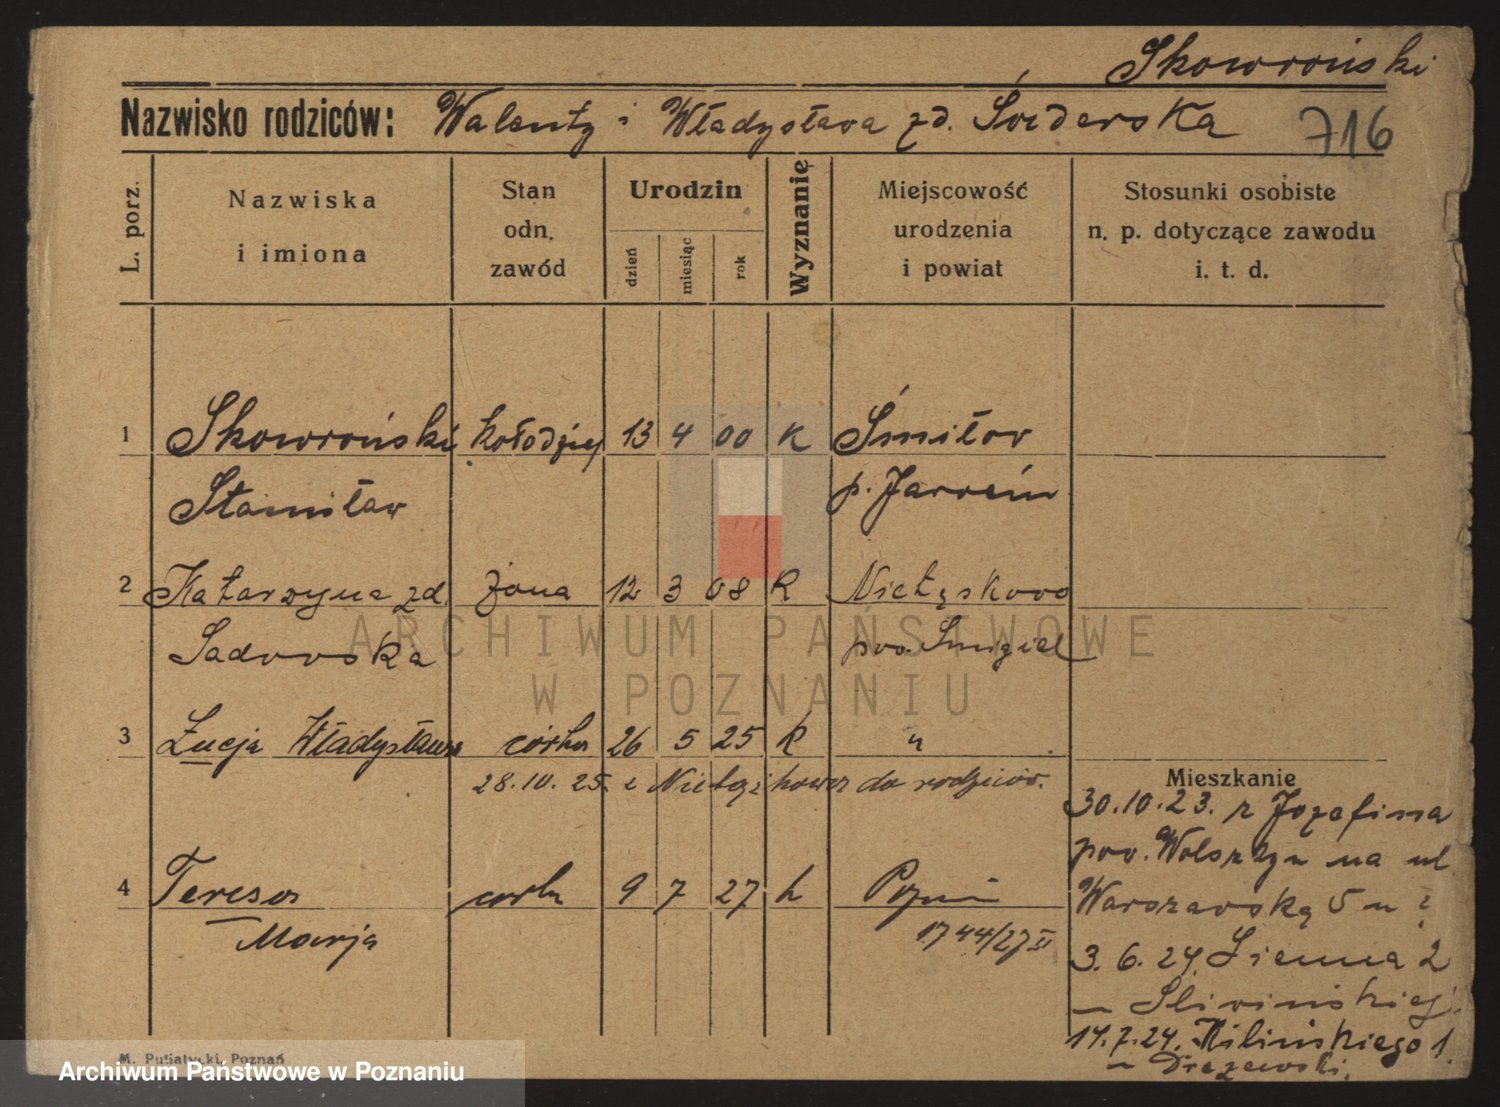 Skowroński
Nazwisko rodziców: Walenty i Władysława zd. Świderska 716
L. porz.
Nazwiska
i imiona
Stan
odn.
zawód
Urodzin
dzień
miesiąc
rok
Wyznanię
Miejscowość
urodzenia
i powiat
Stosunki osobiste
n. p. dotyczące zawodu
i. t. d.
1 Skowroński kołodziej 13 4 00 K Śmiłow
Stanisław p. Jarocin
2 Katarzyna zd. żona 12 3 08 K Nietąskowo
Sadowska pow. Śmigiel
3 Łucja Władysława córka 26 5 25 k "
28.10.25. z Nietąskowa do rodziców.
4 Teresa córka 9 7 27 k Poznań
Marja 1744/27 II
Mieszkanie
30.10.23. z Józefina
pow. Wolsztyn na ul
Warszawską 5 u
3.6.24. Sienna 2
— Śliwińskiej
14.7.24. Kilińskiego 1.
— Drzewski.
M. Putiatycki, Poznań
ARCHIWUM PAŃSTWOWE
W POZNANIU
Archiwum Państwowe w Poznaniu